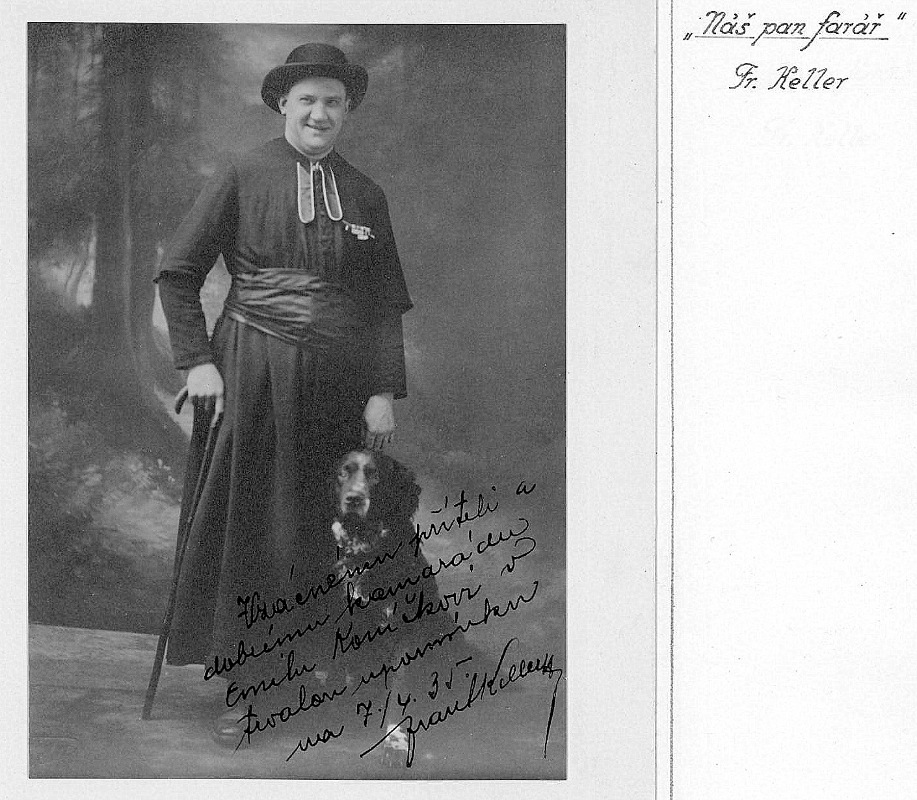 Vzácnému příteli a
dobrému kamarádu
Emilu Koníčkovi v
trvalou upomínku
na 7./4. 35.
Frant Keller
„Náš pan farář“
Fr. Keller